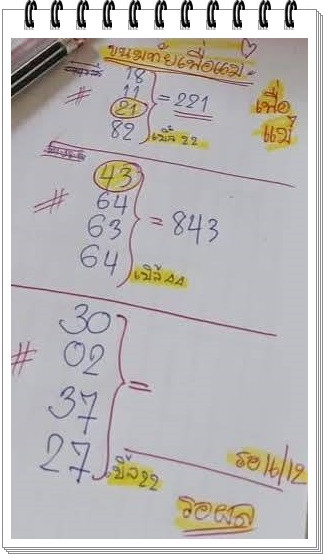 ขนมทัยเพื่อแม่
18
# 11 = 221 เพื่อ
21 แม่
82 เบิ้ล 22
43
# 64 = 843
63
64 เบิ้ล 44
30
# 02 =
37
27 เบิ้ล 22
รอ 16/12
รอผล